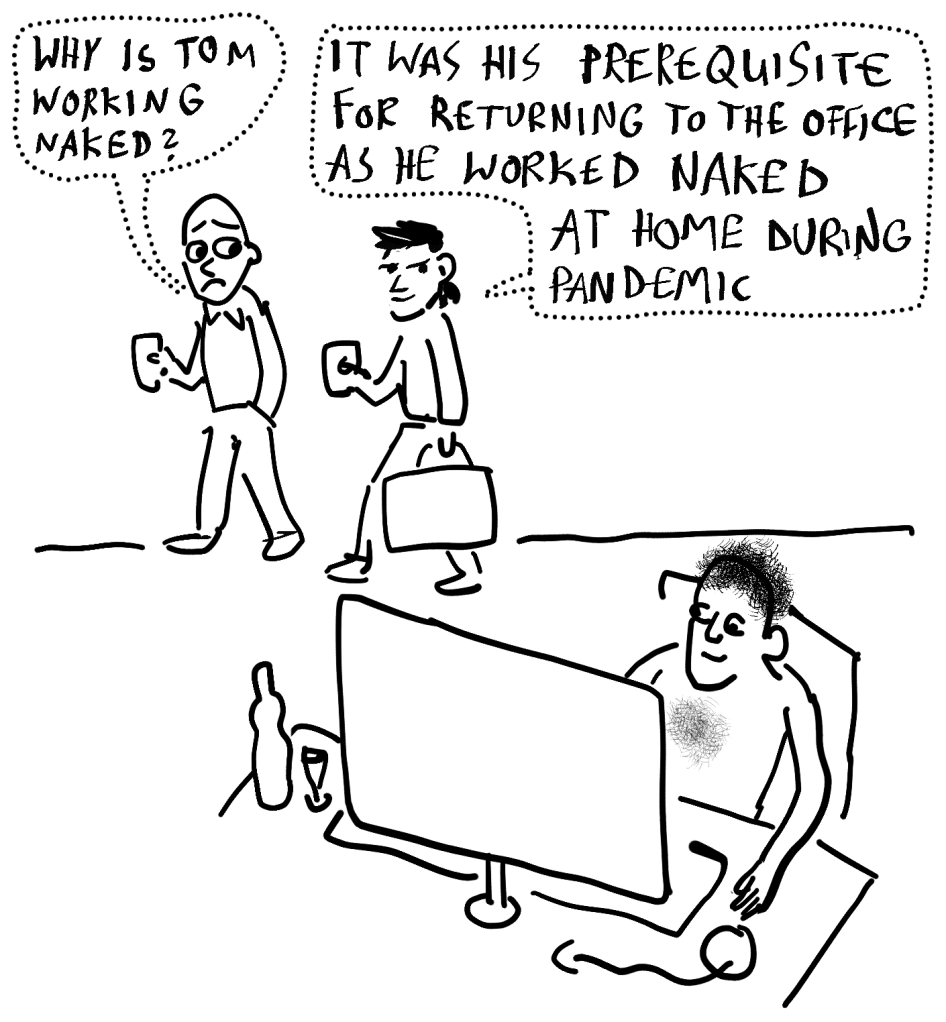 WHY IS TOM
WORKING
NAKED?
IT WAS HIS PREREQUISITE
FOR RETURNING TO THE OFFICE
AS HE WORKED NAKED
AT HOME DURING
PANDEMIC